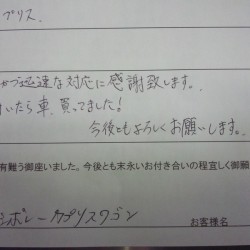 プリス.
迅速な対応に感謝致します。
いたら車、買ってました!
今後ともよろしくお願いします。
有難う御座いました。今後とも末永いお付き合いの程宜しく御願
シボレーカプリスワゴン
お客様名